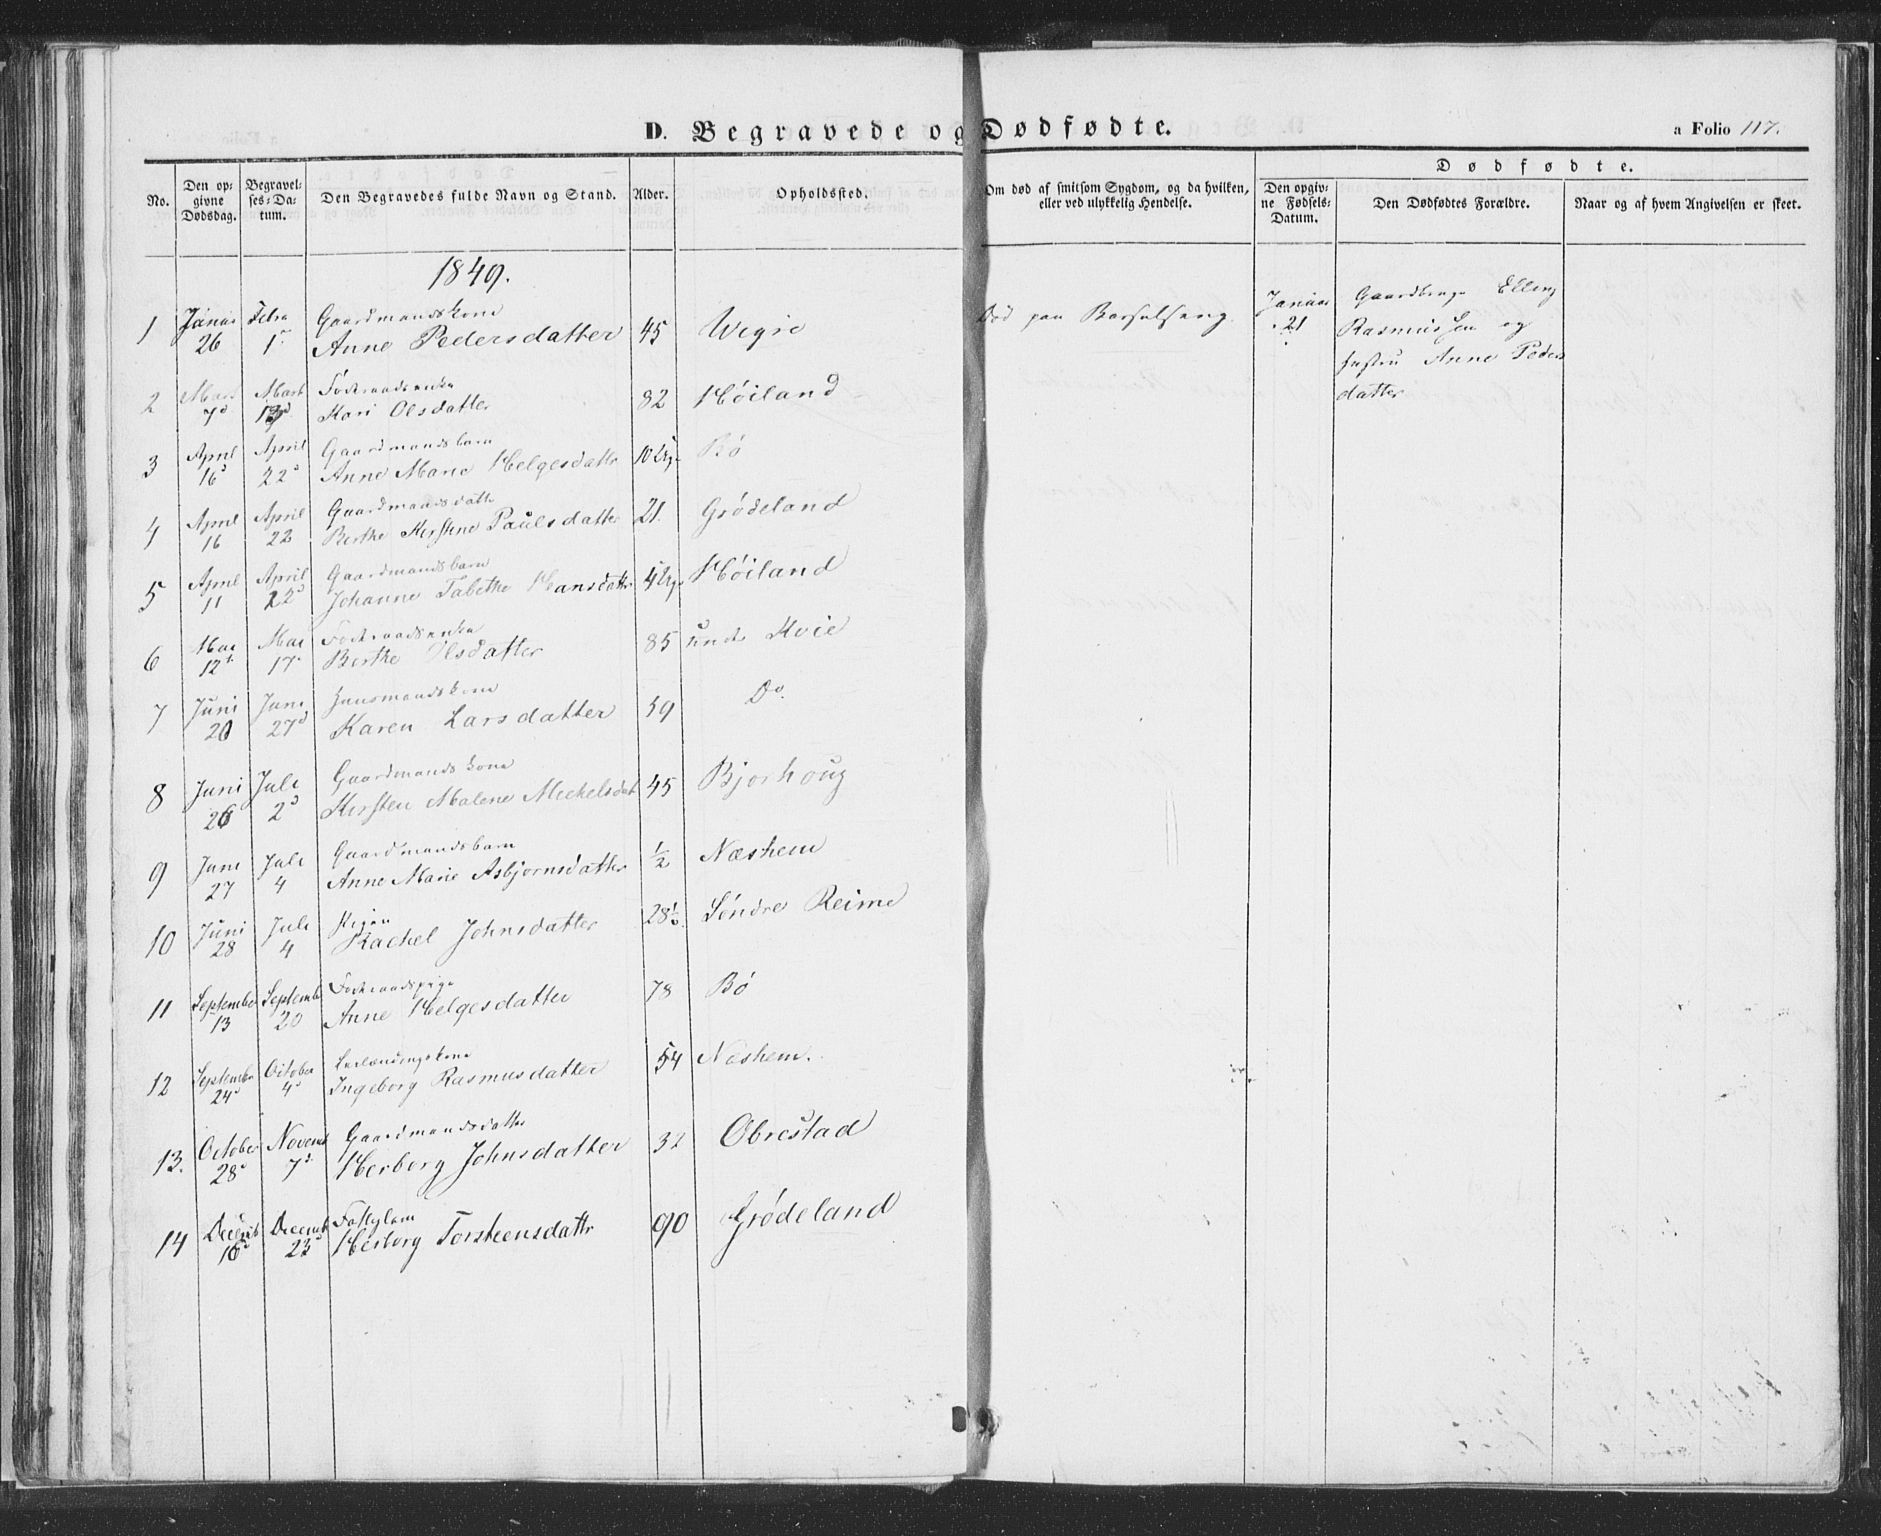 D. Begravede og Dødfødte.
a Folio 117.
No.
Den opgivne Dødsdag.
Begravelses-Datum.
Den Begravedes fulde Navn og Stand.
Alder.
Opholdssted.
Om død af smitsom Sygdom, og da hvilken, eller ved ulykkelig Hendelse.
Dødfødte.
Den opgivne Fødsels-Datum.
Den Dødfødtes Forældre.
Naar og af hvem Angivelsen er skeet.
1849.
1 Januar 26 Febr 1 Gaardmandskone
Anne Pedersdatter 45 Wigre Død paa Barselseng Januar 21 Gaardbruger Elling
Rasmussen og
Hustru Anne Peders
datter
2 Mart 7d Mart Føderaadsenke
Kari Olsdatter 82 Høiland
3 April 16d April 22d Gaardmandsbarn
Anne Marie Helgesdattr 10 Ug. Bø
4 April 16 April 22 Gaardmandsdatte
Berthe Kirstine Paulsdatter 21. Grødeland
5 April 11 April 22d Gaardmandsbarn
Johanne Tabithe Hansdattr 4 Ug. Høiland
6 Mai 12t Mai 17 Føderaadsenke
Berthe Olsdatter 85 unde Kvie
7 Juni Juni 27d Huusmandskone
Karen Larsdatter 59 Do
8 Juni 26 Juli 2d Gaardmandskone
Kirsten Malene Mickelsdat 45 Bjorhoug
9 Juni 27 Juli 4 Gaardmandsbarn
Anne Marie Asbjørnsdatter 1/2 Næshem
10 Juni 28 Juli 4 Pigen
Rachel Johnsdatter 28 1/2 Søndre Reime
11 September 13 Septemb 20 Føderaadspige
Anne Helgesdatter 78 Bø
12 Septembr 24d October 4d
Ingeborg Rasmusdatter 54 Næshem.
13. October 28d Novemb 7d Gaardmandsdatter
Herborg Johnsdatter 32 Obrestad
14 Decemb 16d Decemb 23d Fattiglem
Herborg Torsteensdattr 90 Grødeland